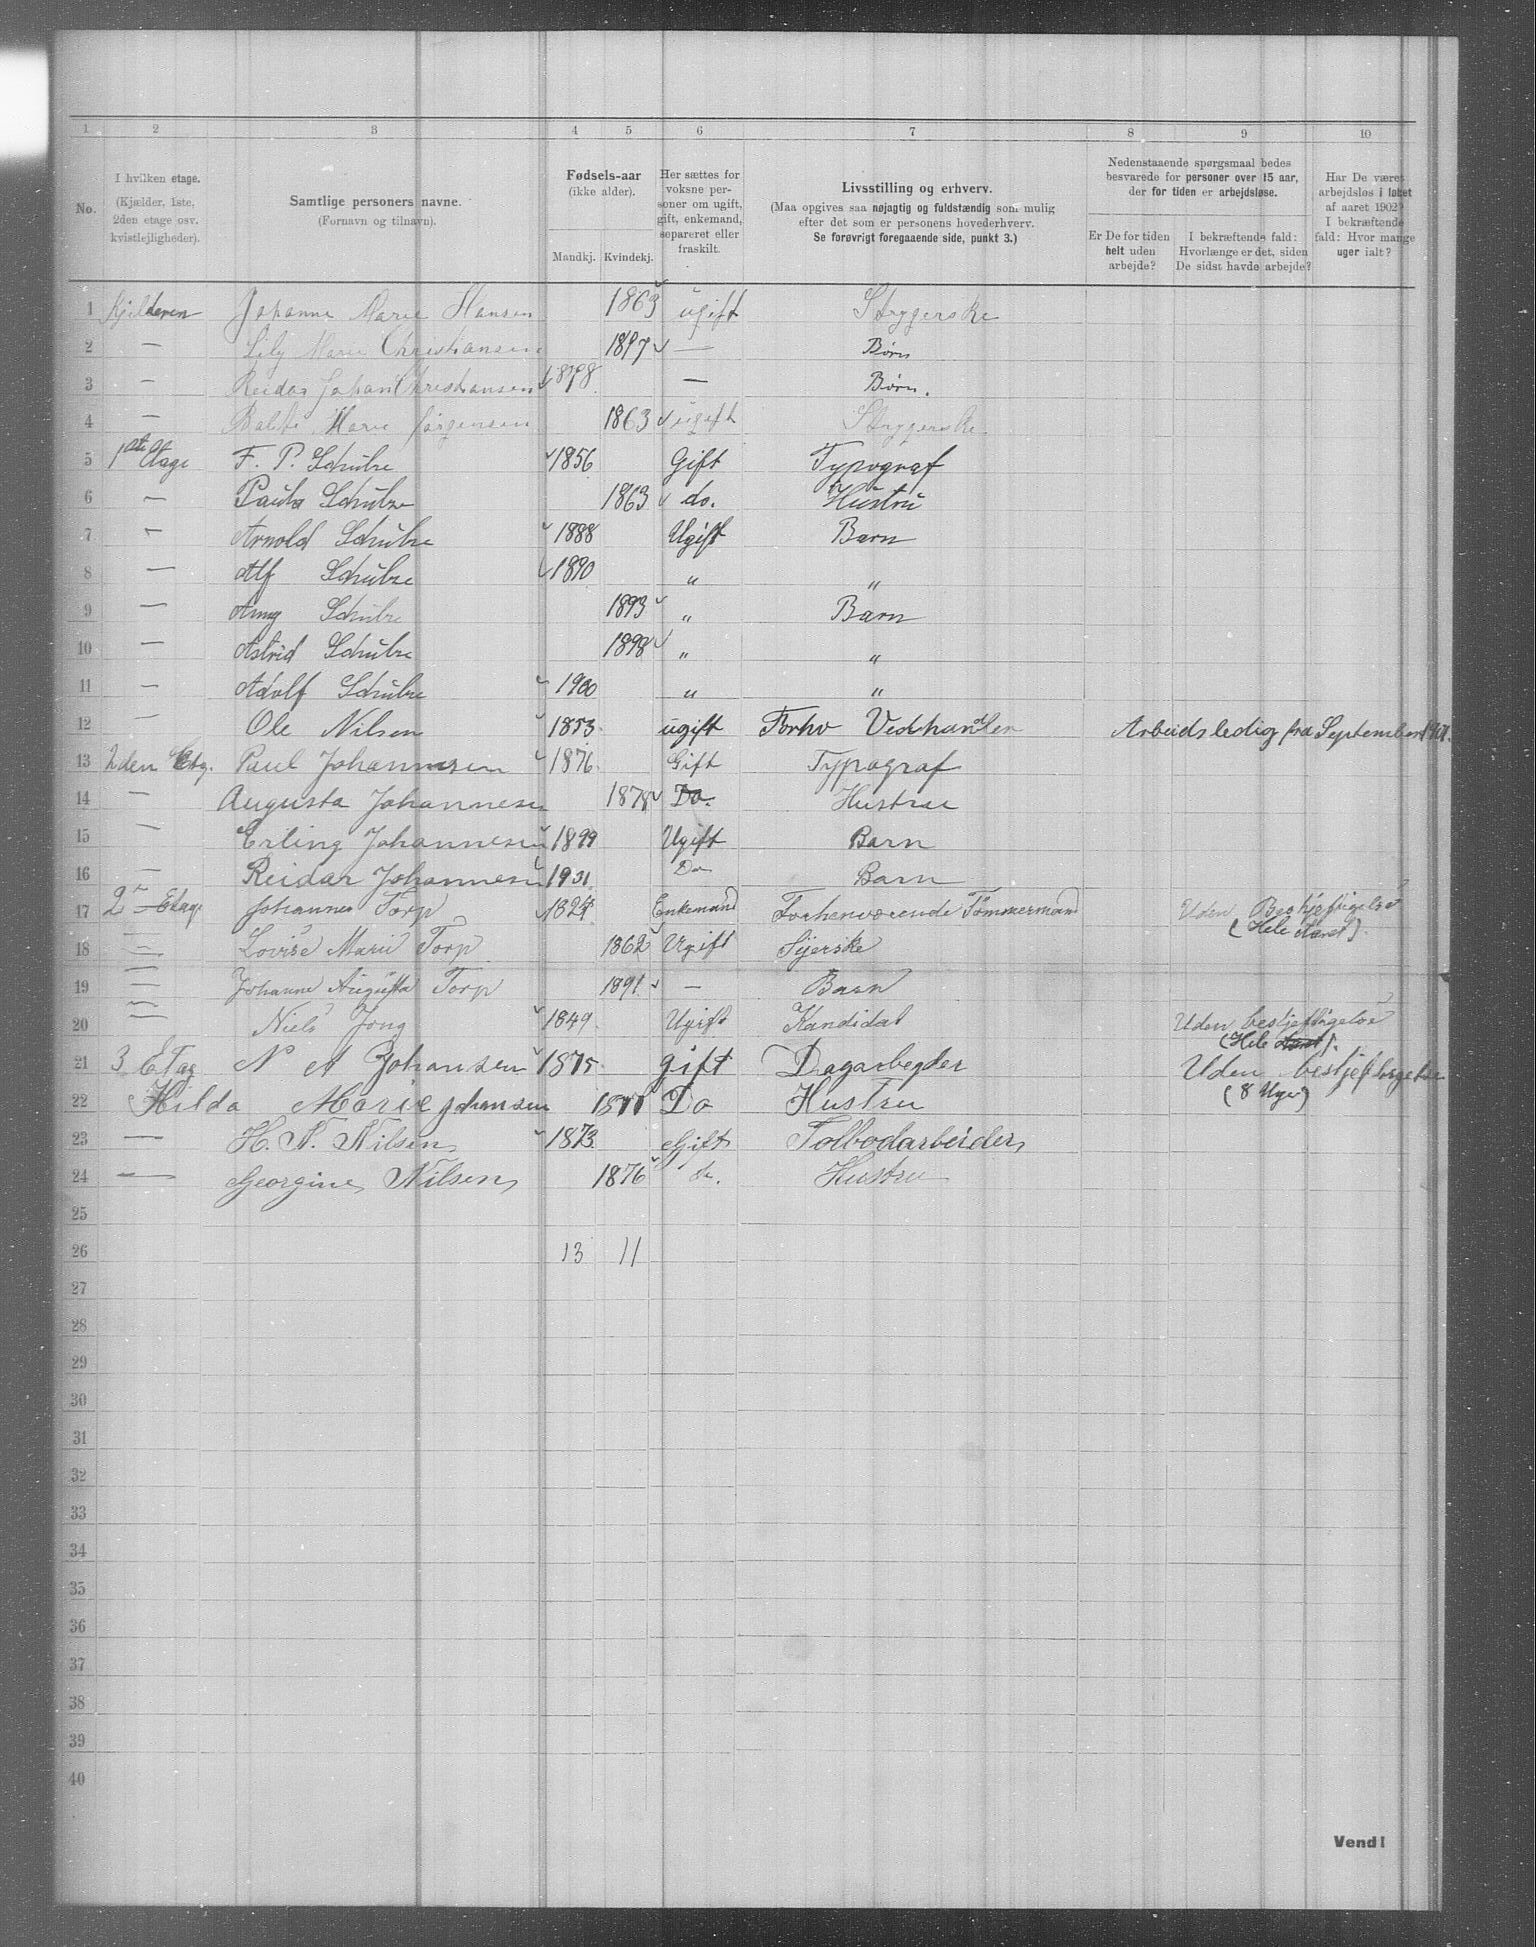 1 2 3 4 5 6 7 8 9 10
No.
I hvilken etage.
(Kjælder, 1ste,
2den etage osv.
kvistlejligheder).
Samtlige personers navne.
(Fornavn og tilnavn).
Fødsels-aar
(ikke alder).
Mandkj. Kvindekj.
Her sættes for
voksne per-
soner om ugift,
gift, enkemand,
separeret eller
fraskilt.
Livsstilling og erhverv.
(Maa opgives saa nøjagtig og fuldstændig som mulig
efter det som er personens hovederhverv.
Se forøvrigt foregaaende side, punkt 3.)
Nedenstaaende spørgsmaal bedes
besvarede for personer over 15 aar,
der for tiden er arbejdsløse.
Er De for tiden
helt uden
arbejde?
I bekræftende fald:
Hvorlænge er det, siden
De sidst havde arbejde?
Har De været
arbejdsløs i løbet
af aaret 1902?
I bekræftende
fald: Hvor mange
uger ialt?
1 Kjelderen Johanne Marie Hansen 1863 ugift Strygerske
2 — Lily Marie Christiansen 1897 — Børn
3 — Reidar Johan Christiansen 1898 — Børn.
4 — Marie Jørgensen 1863 ugift Strygerske
5 1ste Etage F. P. Schulze 1856 Gift Typograf
6 — Paula Schulze 1863 do. Hustru
7 — Arnold Schulze 1888 Ugift Barn
8 — Alf Schulze 1890 " "
9 — Amy Schulze 1893 " Barn
10 — Astrid Schulze 1898 " "
11 — Adolf Schulze 1900 " "
12 — Ole Nilsen 1853 ugift Forhv Vedhandler Arbeidsledig fra September 1901.
13 2den Etg. Paul Johannesen 1876 Gift Typograf
14 — Augusta Johannesen 1878 Do. Hustrue
15 — Erling Johannesen 1899 Ugift Barn
16 — Reidar Johannesen 1901 Do Barn
17 2 Etage Johannes Torp 1824 Enkemand Forhenværende Tømmermand Uden Beskjeftigelse
(Hele Aaret).
18 — Lovise Marie Torp 1862 Ugift Sÿerske
19 — Johanne Augusta Torp 1891 — Barn
20 — Niels Jong 1849 Ugift Kandidat Uden beskjeftigelse
(Hele Aaret).
21 3 Etag N A Johansen 1875 gift Dagarbegder Uden beskjeftigelse
(8 Uger)
22 Hilda Marie Johansen 1877 Do Hustru
23 — H. N. Nilsen 1873 Gift Tolbodarbeider
24 — Georgine Nilsen 1876 do. Hustru
25
26 13 11
27
28
29
30
31
32
33
34
35
36
37
38
39
40
Vend!